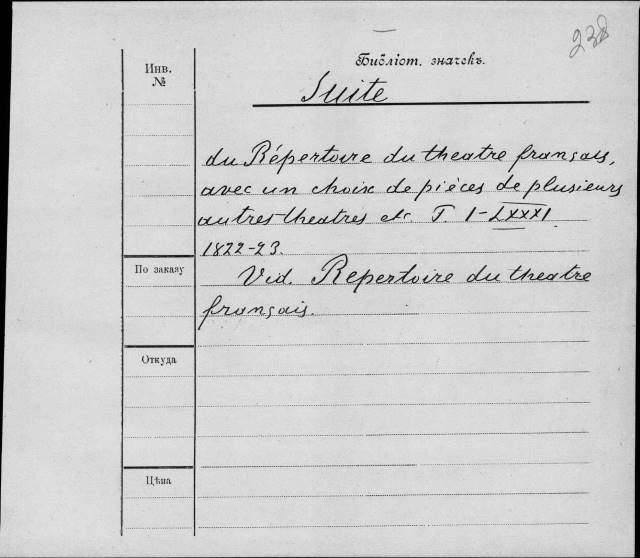 238
Библіот. значекъ.
Инв.
№
Suite
du Répertoire du theatre français,
avec un choix de pièces de plusieurs
autres theatres etc. T. I-LXXXI.
1822-23.
По заказу
Vid. Repertoire du theatre
français.
Откуда
Цѣна